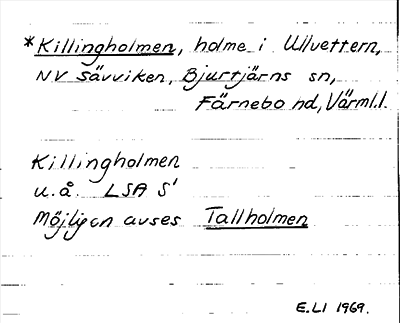 *Killingholmen, holme i Ullvettern,
NV Sävviken, Bjurtjärns sn,
Färnebo hd, Värml.l.
Killingholmen
u.å. LSA S'
Möjligen avses Tallholmen
E.LI 1969.